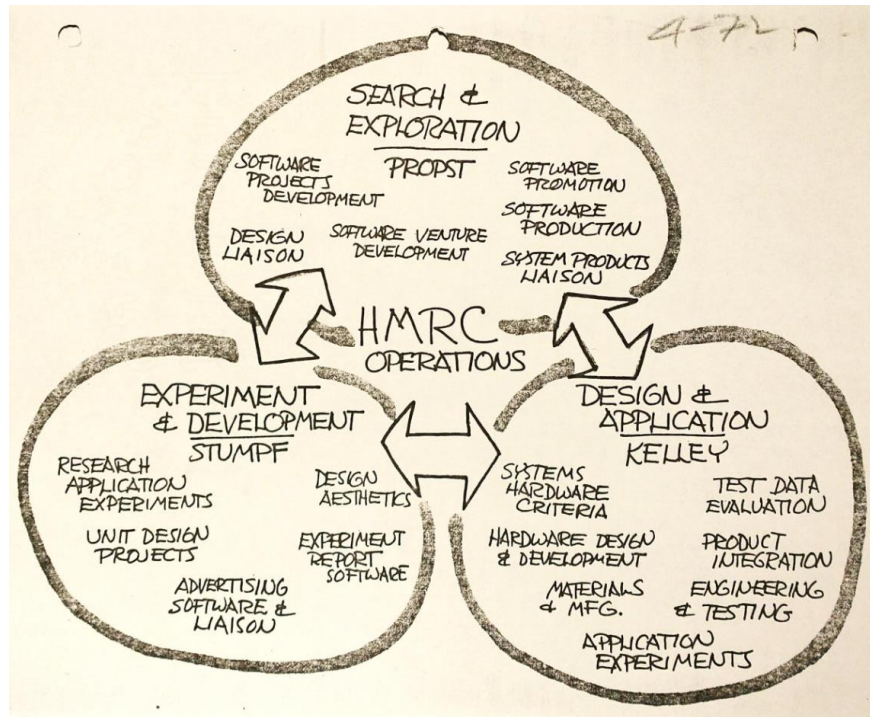 4-72
SEARCH &
EXPLORATION
PROPST
SOFTWARE
PROJECTS
DEVELOPMENT
DESIGN
LIAISON
SOFTWARE VENTURE
DEVELOPMENT
SOFTWARE
PROMOTION
SOFTWARE
PRODUCTION
SYSTEM PRODUCTS
LIAISON
HMRC
OPERATIONS
EXPERIMENT
& DEVELOPMENT
STUMPF
RESEARCH
APPLICATION
EXPERIMENTS
UNIT DESIGN
PROJECTS
ADVERTISING
SOFTWARE &
LIAISON
DESIGN
AESTHETICS
EXPERIMENT
REPORT
SOFTWARE
DESIGN &
APPLICATION
KELLEY
SYSTEMS
HARDWARE
CRITERIA
HARDWARE DESIGN
& DEVELOPMENT
MATERIALS
& MFG.
TEST DATA
EVALUATION
PRODUCT
INTEGRATION
ENGINEERING
& TESTING
APPLICATION
EXPERIMENTS